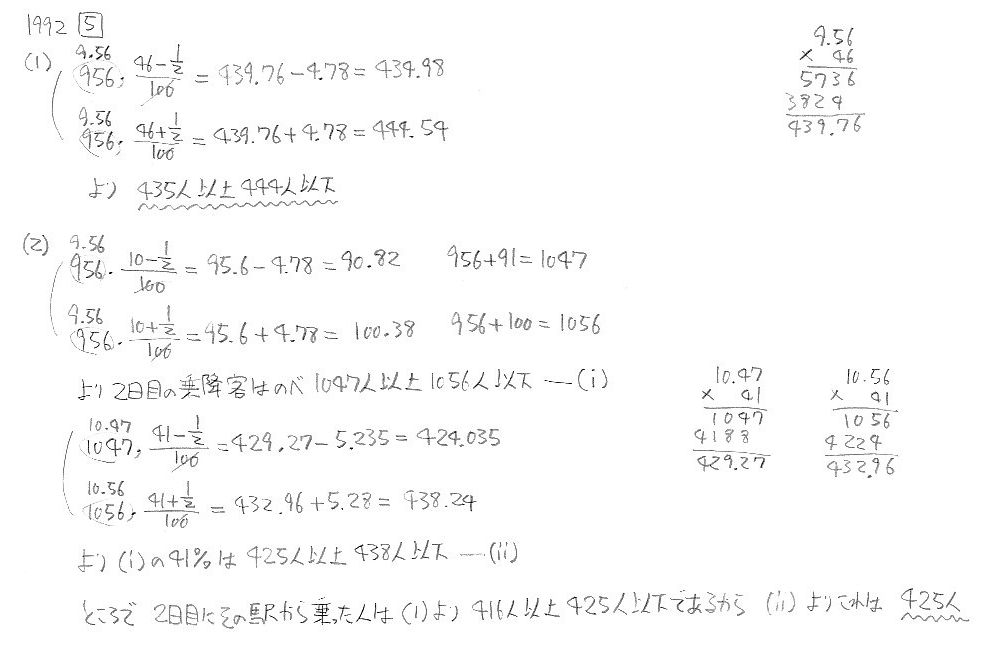 1992 5
9.56
× 46
5736
3824
439.76
(1) 9.56
956・(46-1/2)/100 = 439.76-4.78=434.98
9.56
956・(46+1/2)/100 = 439.76+4.78=444.54
より 435人以上444人以下
(2) 9.56
956・(10-1/2)/100 = 95.6-4.78=90.82 956+91=1047
9.56
956・(10+1/2)/100 = 95.6+4.78= 100.38 956+100=1056
より2日目の乗降客はのべ1047人以上1056人以下 ―(i)
10.47
× 41
1047
4188
429.27
10.56
× 41
1056
4224
432.96
10.47
1047・(41-1/2)/100 =429.27-5.235=424.035
10.56
1056・(41+1/2)/100 = 432.96+5.28= 438.24
より(i)の41%は425人以上438人以下 ―(ii)
ところで 2日目にその駅から乗った人は(1)より416人以上425人以下であるから (ii)よりこれは 425人